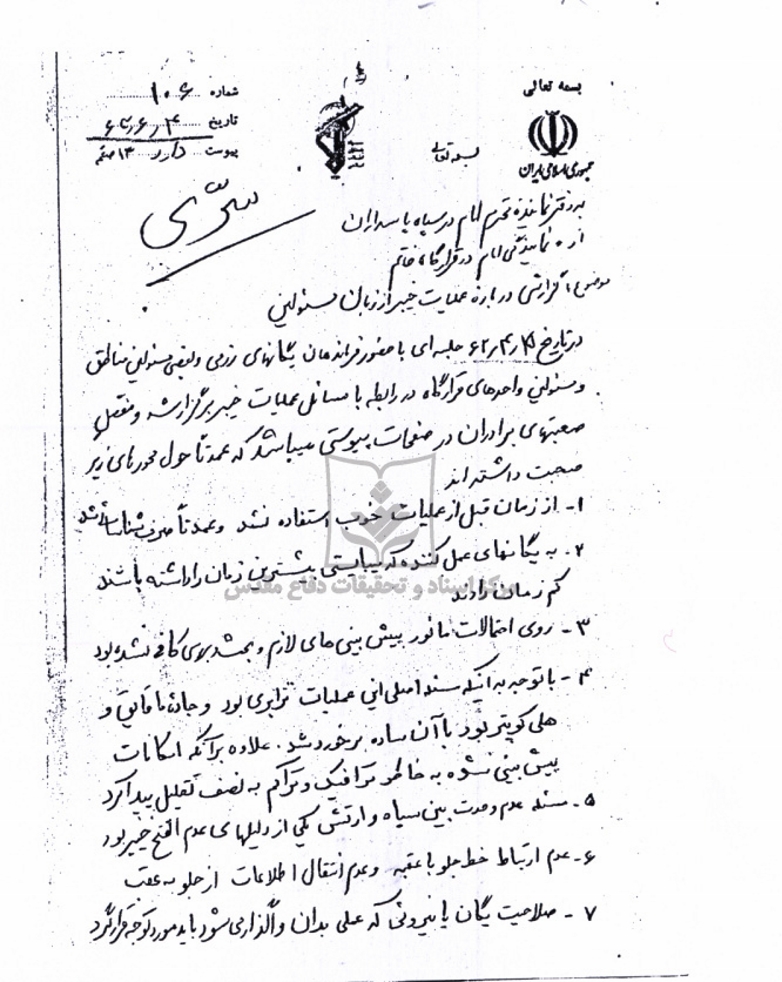 بسمه تعالی
جمهوری اسلامی ایران
بسمه تعالی
شماره ۱۰۶
تاریخ ۶۲/۶/۴
پیوست دارد ۱۳ صفحه
سرّی
به دفتر نماینده محترم امام در سپاه پاسداران
از: نمایندگی امام در قرارگاه خاتم
موضوع: گزارشی درباره عملیات خیبر از زبان مسئولین
در تاریخ ۶۲/۴/ جلسه‌ای با حضور فرماندهان یگانهای رزمی و بعضی مسئولین مناطق
و مسئولین واحدهای قرارگاه در رابطه با مسائل عملیات خیبر برگزار شد و مفصل
صحبتهای برادران در صفحات پیوستی میباشد که عمدتاً حول محورهای زیر
صحبت داشته‌اند
۱- از زمان قبل از عملیات خوب استفاده نشد و عمدتاً صرف شناسائی شد
۲- به یگانهای عمل کننده که میبایستی بیشترین زمان را داشته باشند
کم زمان دادند
۳- روی احتمالات مانور پیش بینی های لازم و بحث و بررسی کافی نشده بود
۴- با توجه به اینکه مسئله اصلی این عملیات ترابری بود و جاده ما قایق و
هلی کوپتر بود با آن ساده برخورد شد. علاوه بر آنکه امکانات
پیش بینی شده به خاطر ترافیک و تراکم به نصف تقلیل پیدا کرد
۵- مسئله عدم وحدت بین سپاه و ارتش یکی از دلیلهای عدم الفتح خیبر بود
۶- عدم ارتباط خط جلو با عقبه و عدم انتقال اطلاعات از جلو به عقب
۷- صلاحیت یگان یا نیروئی که عملی بدان واگذار می شود باید مورد توجه قرار گیرد
مرکز اسناد و تحقیقات دفاع مقدس